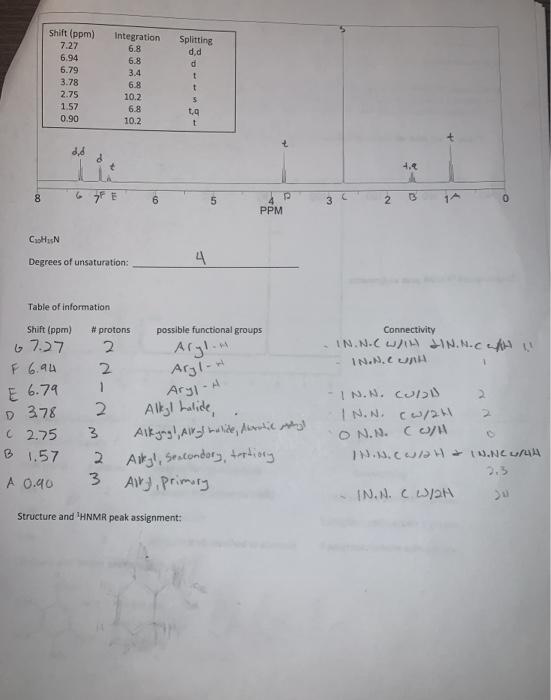 Shift (ppm) Integration Splitting
7.27 6.8 d,d
6.94 6.8 d
6.79 3.4 t
3.78 6.8 t
2.75 10.2 s
1.57 6.8 t,q
0.90 10.2 t
s
d,d d t t t,q t
8 G 7 F E 6 5 4 D 3 C 2 B 1 A 0
PPM
C₁₀H₁₅N
Degrees of unsaturation: 4
Table of information
Shift (ppm) # protons possible functional groups Connectivity
G 7.27 2 Aryl-H - 1N.N.C W/1H
F 6.94 2 Aryl-H - 1N.N.C W/1H 1
E 6.79 1 Aryl-H - 1 N.N. C W/2H 2
D 3.78 2 Alkyl halide, 1 N.N. C W/2H 2
C 2.75 3 0 N.N. C W/H 0
B 1.57 2 Alkyl, Secondary, tertiary 1N.N.C W/2H + 1N.N C W/ 2,3
A 0.90 3 Alkyl, Primary - 1N.N. C W/2H
Structure and ¹HNMR peak assignment: